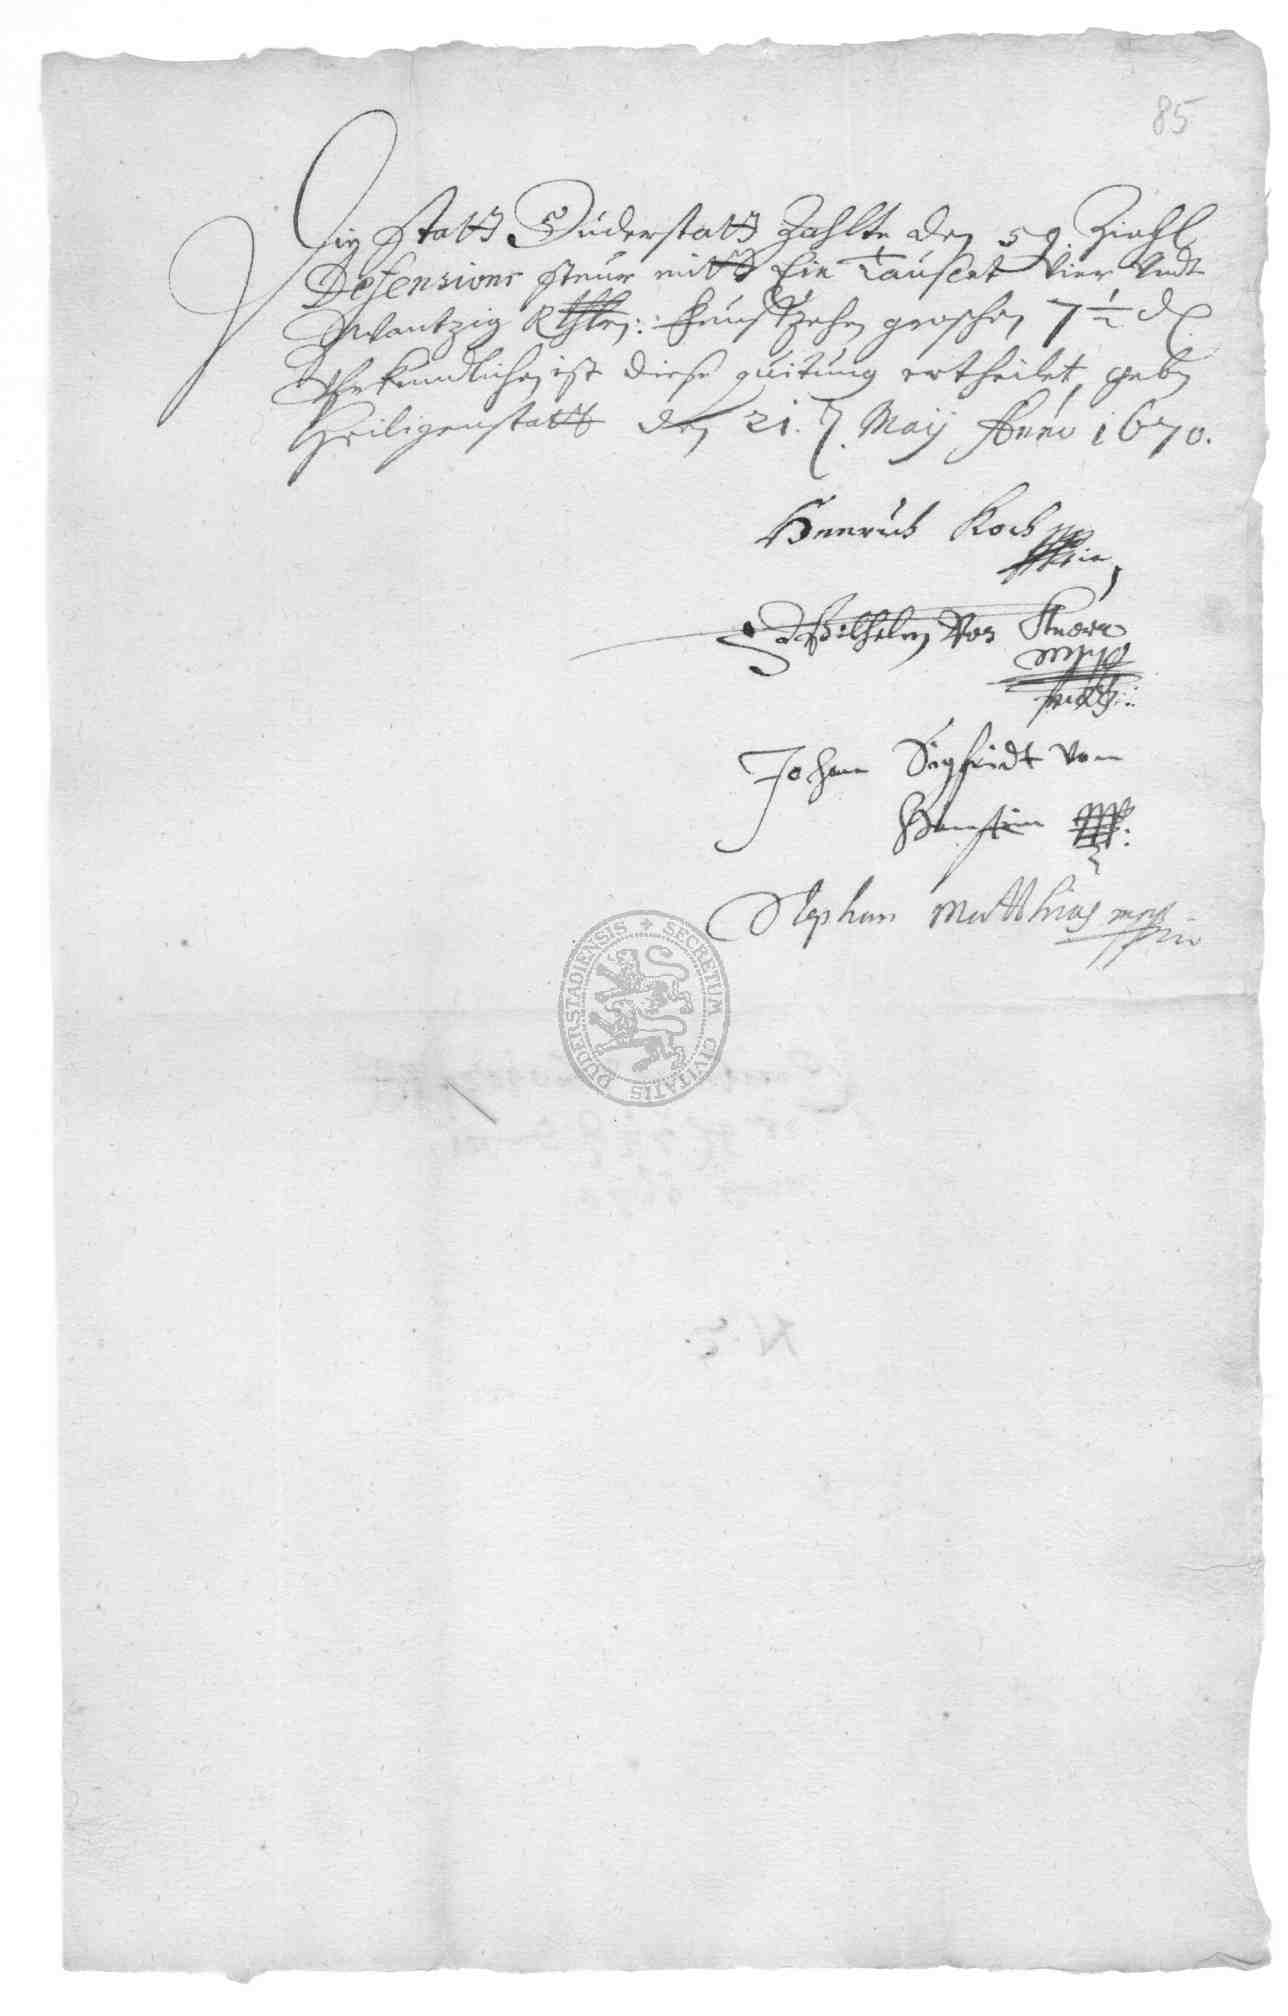 85
Die Statt Duderstatt Zahlte den 59. Ziehl
Defensions steuer mitt Ein Tausent Vier Undt
Zwantzig Rthlr: funftzehen groschen 7½ d
Uhrkundlichen ist diese quitung ertheilet, geben
Heiligenstatt den 21. May Anno 1670.
Henrich Koch mppria
Wilhelm Von Knorr
mpp
Johan Sigfridt von
Hanstein mpp:
Stephan Matthias mppria
SECRETUM CIVITATIS DUDERSTADIENSIS